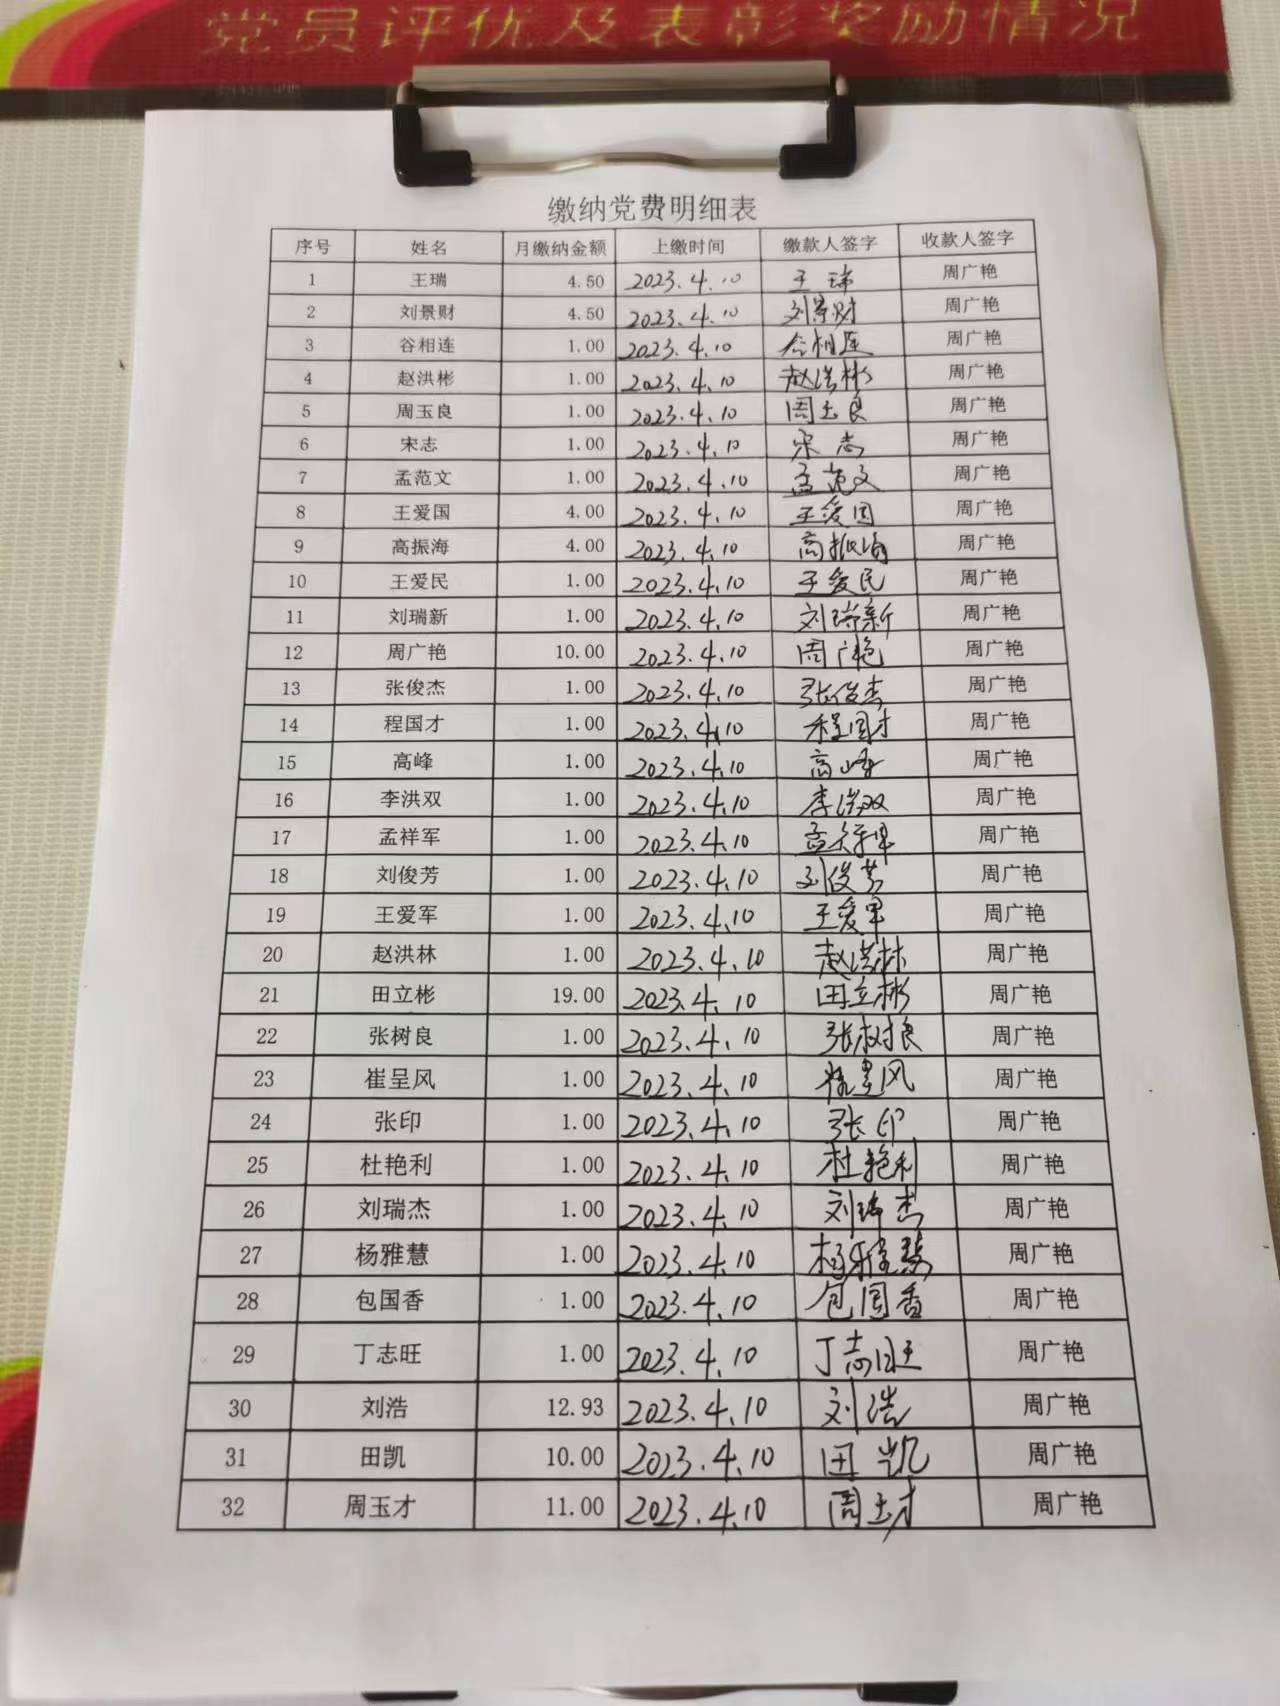 党员评优及表彰奖励情况
缴纳党费明细表
序号 姓名 月缴纳金额 上缴时间 缴款人签字 收款人签字
1 王瑞 4.50 2023.4.10 王瑞 周广艳
2 刘景财 4.50 2023.4.10 刘景财 周广艳
3 谷相连 1.00 2023.4.10 谷相连 周广艳
4 赵洪彬 1.00 2023.4.10 赵洪彬 周广艳
5 周玉良 1.00 2023.4.10 周玉良 周广艳
6 宋志 1.00 2023.4.10 宋志 周广艳
7 孟范文 1.00 2023.4.10 孟范文 周广艳
8 王爱国 4.00 2023.4.10 王爱国 周广艳
9 高振海 4.00 2023.4.10 高振海 周广艳
10 王爱民 1.00 2023.4.10 王爱民 周广艳
11 刘瑞新 1.00 2023.4.10 刘瑞新 周广艳
12 周广艳 10.00 2023.4.10 周广艳 周广艳
13 张俊杰 1.00 2023.4.10 张俊杰 周广艳
14 程国才 1.00 2023.4.10 程国才 周广艳
15 高峰 1.00 2023.4.10 高峰 周广艳
16 李洪双 1.00 2023.4.10 李洪双 周广艳
17 孟祥军 1.00 2023.4.10 孟祥军 周广艳
18 刘俊芳 1.00 2023.4.10 刘俊芳 周广艳
19 王爱军 1.00 2023.4.10 王爱军 周广艳
20 赵洪林 1.00 2023.4.10 赵洪林 周广艳
21 田立彬 19.00 2023.4.10 田立彬 周广艳
22 张树良 1.00 2023.4.10 张树良 周广艳
23 崔呈风 1.00 2023.4.10 崔呈风 周广艳
24 张印 1.00 2023.4.10 张印 周广艳
25 杜艳利 1.00 2023.4.10 杜艳利 周广艳
26 刘瑞杰 1.00 2023.4.10 刘瑞杰 周广艳
27 杨雅慧 1.00 2023.4.10 杨雅慧 周广艳
28 包国香 1.00 2023.4.10 包国香 周广艳
29 丁志旺 1.00 2023.4.10 丁志旺 周广艳
30 刘浩 12.93 2023.4.10 刘浩 周广艳
31 田凯 10.00 2023.4.10 田凯 周广艳
32 周玉才 11.00 2023.4.10 周玉才 周广艳